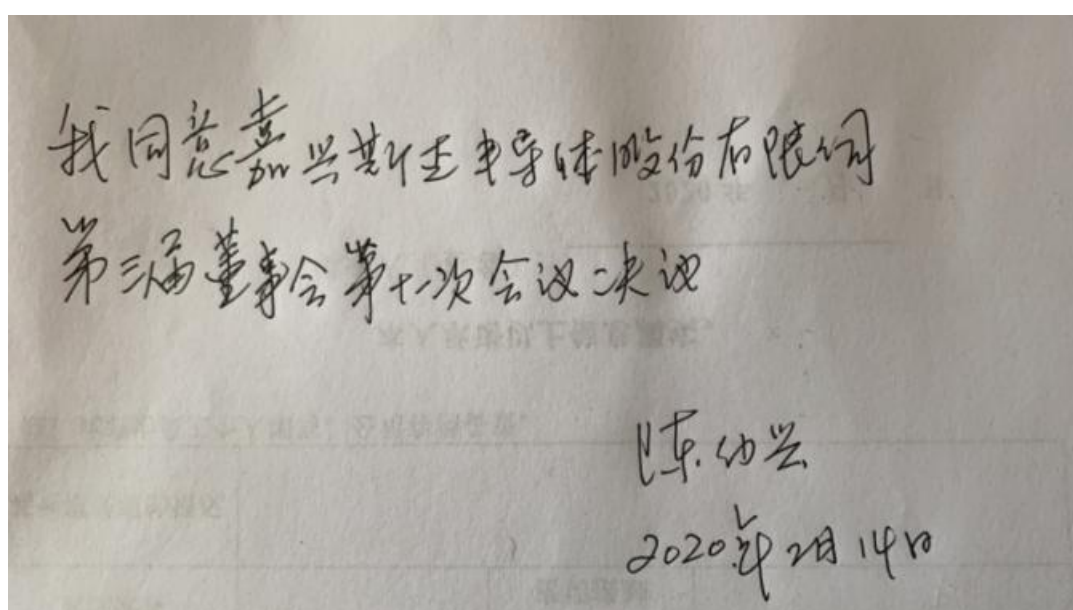 我同意嘉兴斯达半导体股份有限公司
第三届董事会第十一次会议决议
陈幼兴
2020年2月14日